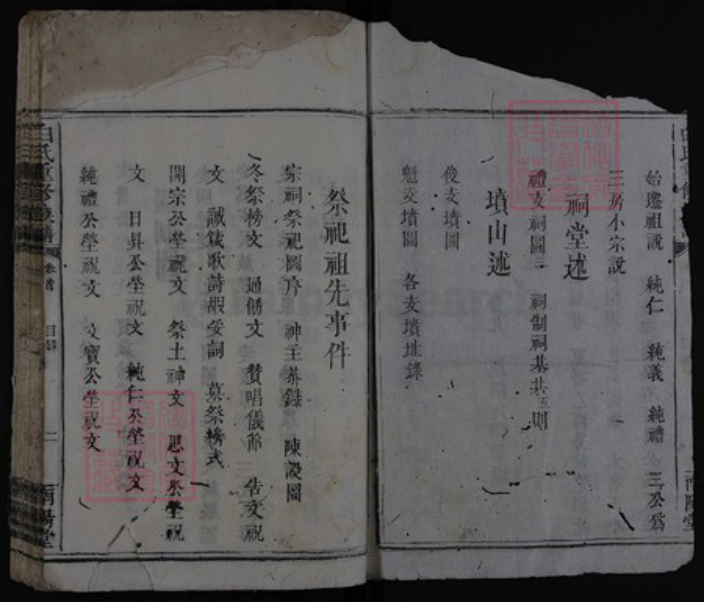 始遷祖說 純仁 純義 純禮 三公爲
三房小宗說
祠堂述
禮支祠圖三 祠制祠基共五則
墳山述
俊支墳圖
魁支墳圖 各支墳址錄
祭祀祖先事件
宗祠祭祀圖序 神主 錄 陳設圖
冬祭榜文 通俻文 贊唱儀節 告文祝
文 誠箴歌詩嘏妥詞 墓祭榜式
開宗公塋祝文 祭土神文 思文公塋祝
文 日昇公塋祝文 純仁公塋祝文
純禮公塋祝文 文寶公塋祝文
氏重修族譜 卷首 目錄 二 南陽堂